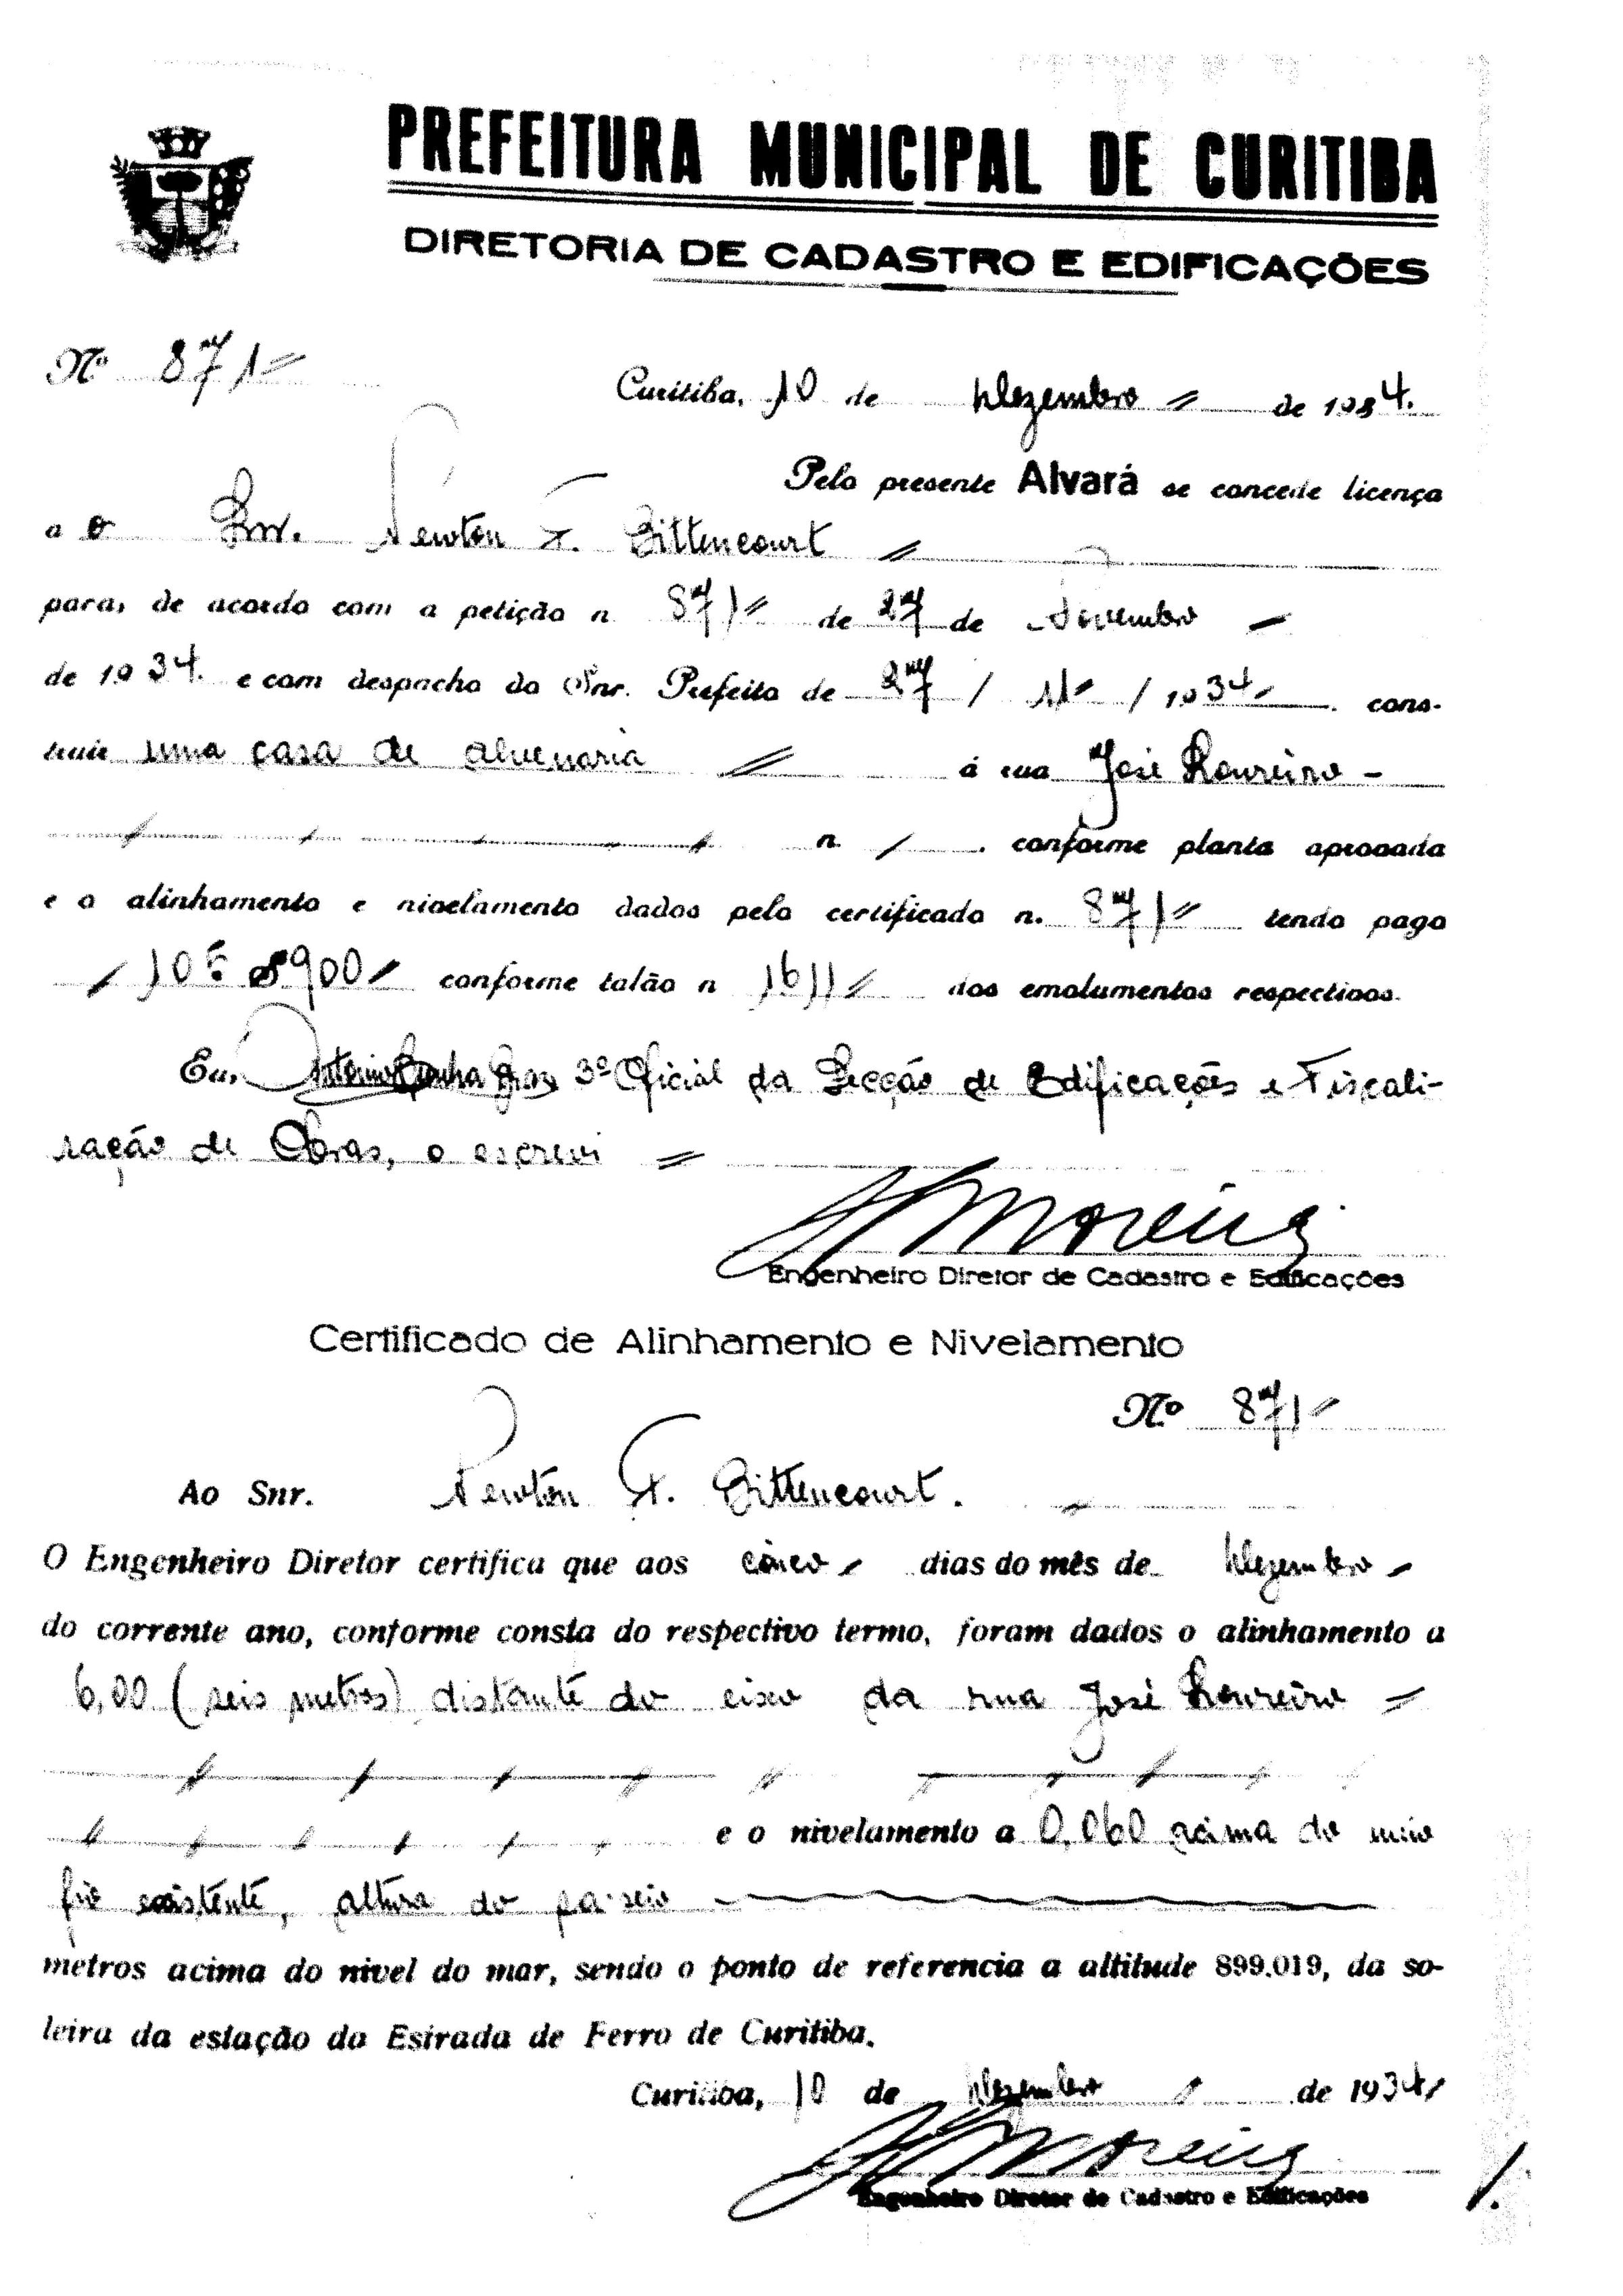 PREFEITURA MUNICIPAL DE CURITIBA
DIRETORIA DE CADASTRO E EDIFICAÇÕES
Nº 871
Curitiba, 10 de Dezembro de 1934.
Pelo presente Alvará se concede licença
a o Snr. Newton F. Bittencourt
para, de acordo com a petição n 871 de 27 de Novembro
de 1934. e com despacho do Snr. Prefeito de 27 / 11 / 1934 cons-
truir uma casa de alvenaria á rua José Loureiro -
n. / . conforme planta aprovada
e o alinhamento e nivelamento dados pelo certificado n. 871 tendo pago
conforme talão n 1611 dos emolumentos respectivos.
Eu, 3º Oficial da Secção de Edificações e Fiscali-
zação de Obras, o escrevi
Moreira
Engenheiro Diretor de Cadastro e Edificações
Certificado de Alinhamento e Nivelamento
Nº 871
Ao Snr. Newton F. Bittencourt.
O Engenheiro Diretor certifica que aos cinco dias do mês de Dezembro
do corrente ano, conforme consta do respectivo termo, foram dados o alinhamento a
6,00 (seis metros) distante do eixo da rua José Loureiro
e o nivelamento a 0,060 acima do meio
fio existente, altura do passeio
metros acima do nivel do mar, sendo o ponto de referencia a altitude 899.019, da so-
leira da estação da Estrada de Ferro de Curitiba.
Curitiba, 10 de Dezembro de 1934
Moreira
Engenheiro Diretor de Cadastro e Edificações